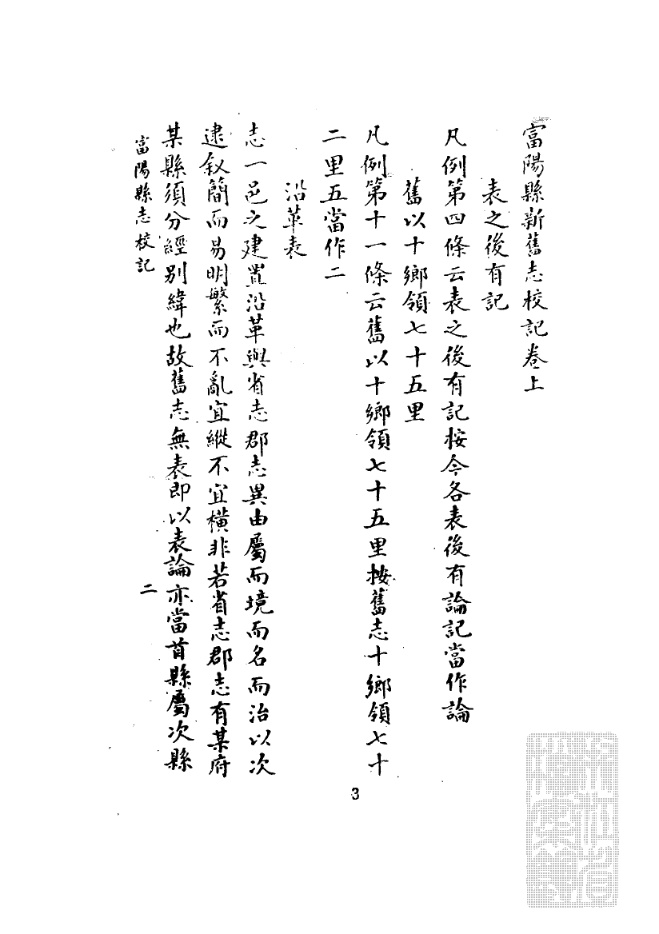 富陽縣新舊志校記卷上
表之後有記
凡例第四條云表之後有記按今各表後有論記當作論
舊以十鄉領七十五里
凡例第十一條云舊以十鄉領七十五里按舊志十鄉領七十
二里五當作二
沿革表
志一邑之建置沿革與省志郡志異由屬而境而名而治以次
逮叙簡而易明繁而不亂宜縱不宜橫非若省志郡志有某府
某縣須分經別緯也故舊志無表即以表論亦當首縣屬次縣
富陽縣志校記
二
3